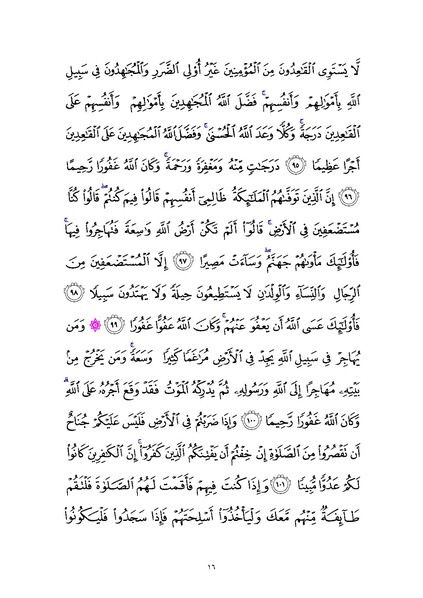 لَّا يَسْتَوِي الْقَاعِدُونَ مِنَ الْمُؤْمِنِينَ غَيْرُ أُوْلِي الضَّرَرِ وَالْمُجَاهِدُونَ فِي سَبِيلِ
اللَّهِ بِأَمْوَالِهِمْ وَأَنفُسِهِمْ ۚ فَضَّلَ اللَّهُ الْمُجَاهِدِينَ بِأَمْوَالِهِمْ وَأَنفُسِهِمْ عَلَى
الْقَاعِدِينَ دَرَجَةً ۚ وَكُلًّا وَعَدَ اللَّهُ الْحُسْنَىٰ ۚ وَفَضَّلَ اللَّهُ الْمُجَاهِدِينَ عَلَى الْقَاعِدِينَ
أَجْرًا عَظِيمًا ٩٥ دَرَجَاتٍ مِّنْهُ وَمَغْفِرَةً وَرَحْمَةً ۚ وَكَانَ اللَّهُ غَفُورًا رَّحِيمًا
٩٦ إِنَّ الَّذِينَ تَوَفَّاهُمُ الْمَلَائِكَةُ ظَالِمِي أَنفُسِهِمْ قَالُوا فِيمَ كُنتُمْ ۖ قَالُوا كُنَّا
مُسْتَضْعَفِينَ فِي الْأَرْضِ ۚ قَالُوا أَلَمْ تَكُنْ أَرْضُ اللَّهِ وَاسِعَةً فَتُهَاجِرُوا فِيهَا ۚ
فَأُولَٰئِكَ مَأْوَاهُمْ جَهَنَّمُ ۖ وَسَاءَتْ مَصِيرًا ٩٧ إِلَّا الْمُسْتَضْعَفِينَ مِنَ
الرِّجَالِ وَالنِّسَاءِ وَالْوِلْدَانِ لَا يَسْتَطِيعُونَ حِيلَةً وَلَا يَهْتَدُونَ سَبِيلًا ٩٨
فَأُولَٰئِكَ عَسَى اللَّهُ أَن يَعْفُوَ عَنْهُمْ ۚ وَكَانَ اللَّهُ عَفُوًّا غَفُورًا ٩٩ ۞ وَمَن
يُهَاجِرْ فِي سَبِيلِ اللَّهِ يَجِدْ فِي الْأَرْضِ مُرَاغَمًا كَثِيرًا وَسَعَةً ۚ وَمَن يَخْرُجْ مِنْ
بَيْتِهِ مُهَاجِرًا إِلَى اللَّهِ وَرَسُولِهِ ثُمَّ يُدْرِكْهُ الْمَوْتُ فَقَدْ وَقَعَ أَجْرُهُ عَلَى اللَّهِ ۗ
وَكَانَ اللَّهُ غَفُورًا رَّحِيمًا ١٠٠ وَإِذَا ضَرَبْتُمْ فِي الْأَرْضِ فَلَيْسَ عَلَيْكُمْ جُنَاحٌ
أَن تَقْصُرُوا مِنَ الصَّلَاةِ إِنْ خِفْتُمْ أَن يَفْتِنَكُمُ الَّذِينَ كَفَرُوا ۚ إِنَّ الْكَافِرِينَ كَانُوا
لَكُمْ عَدُوًّا مُّبِينًا ١٠١ وَإِذَا كُنتَ فِيهِمْ فَأَقَمْتَ لَهُمُ الصَّلَاةَ فَلْتَقُمْ
طَائِفَةٌ مِّنْهُم مَّعَكَ وَلْيَأْخُذُوا أَسْلِحَتَهُمْ فَإِذَا سَجَدُوا فَلْيَكُونُوا
١٦